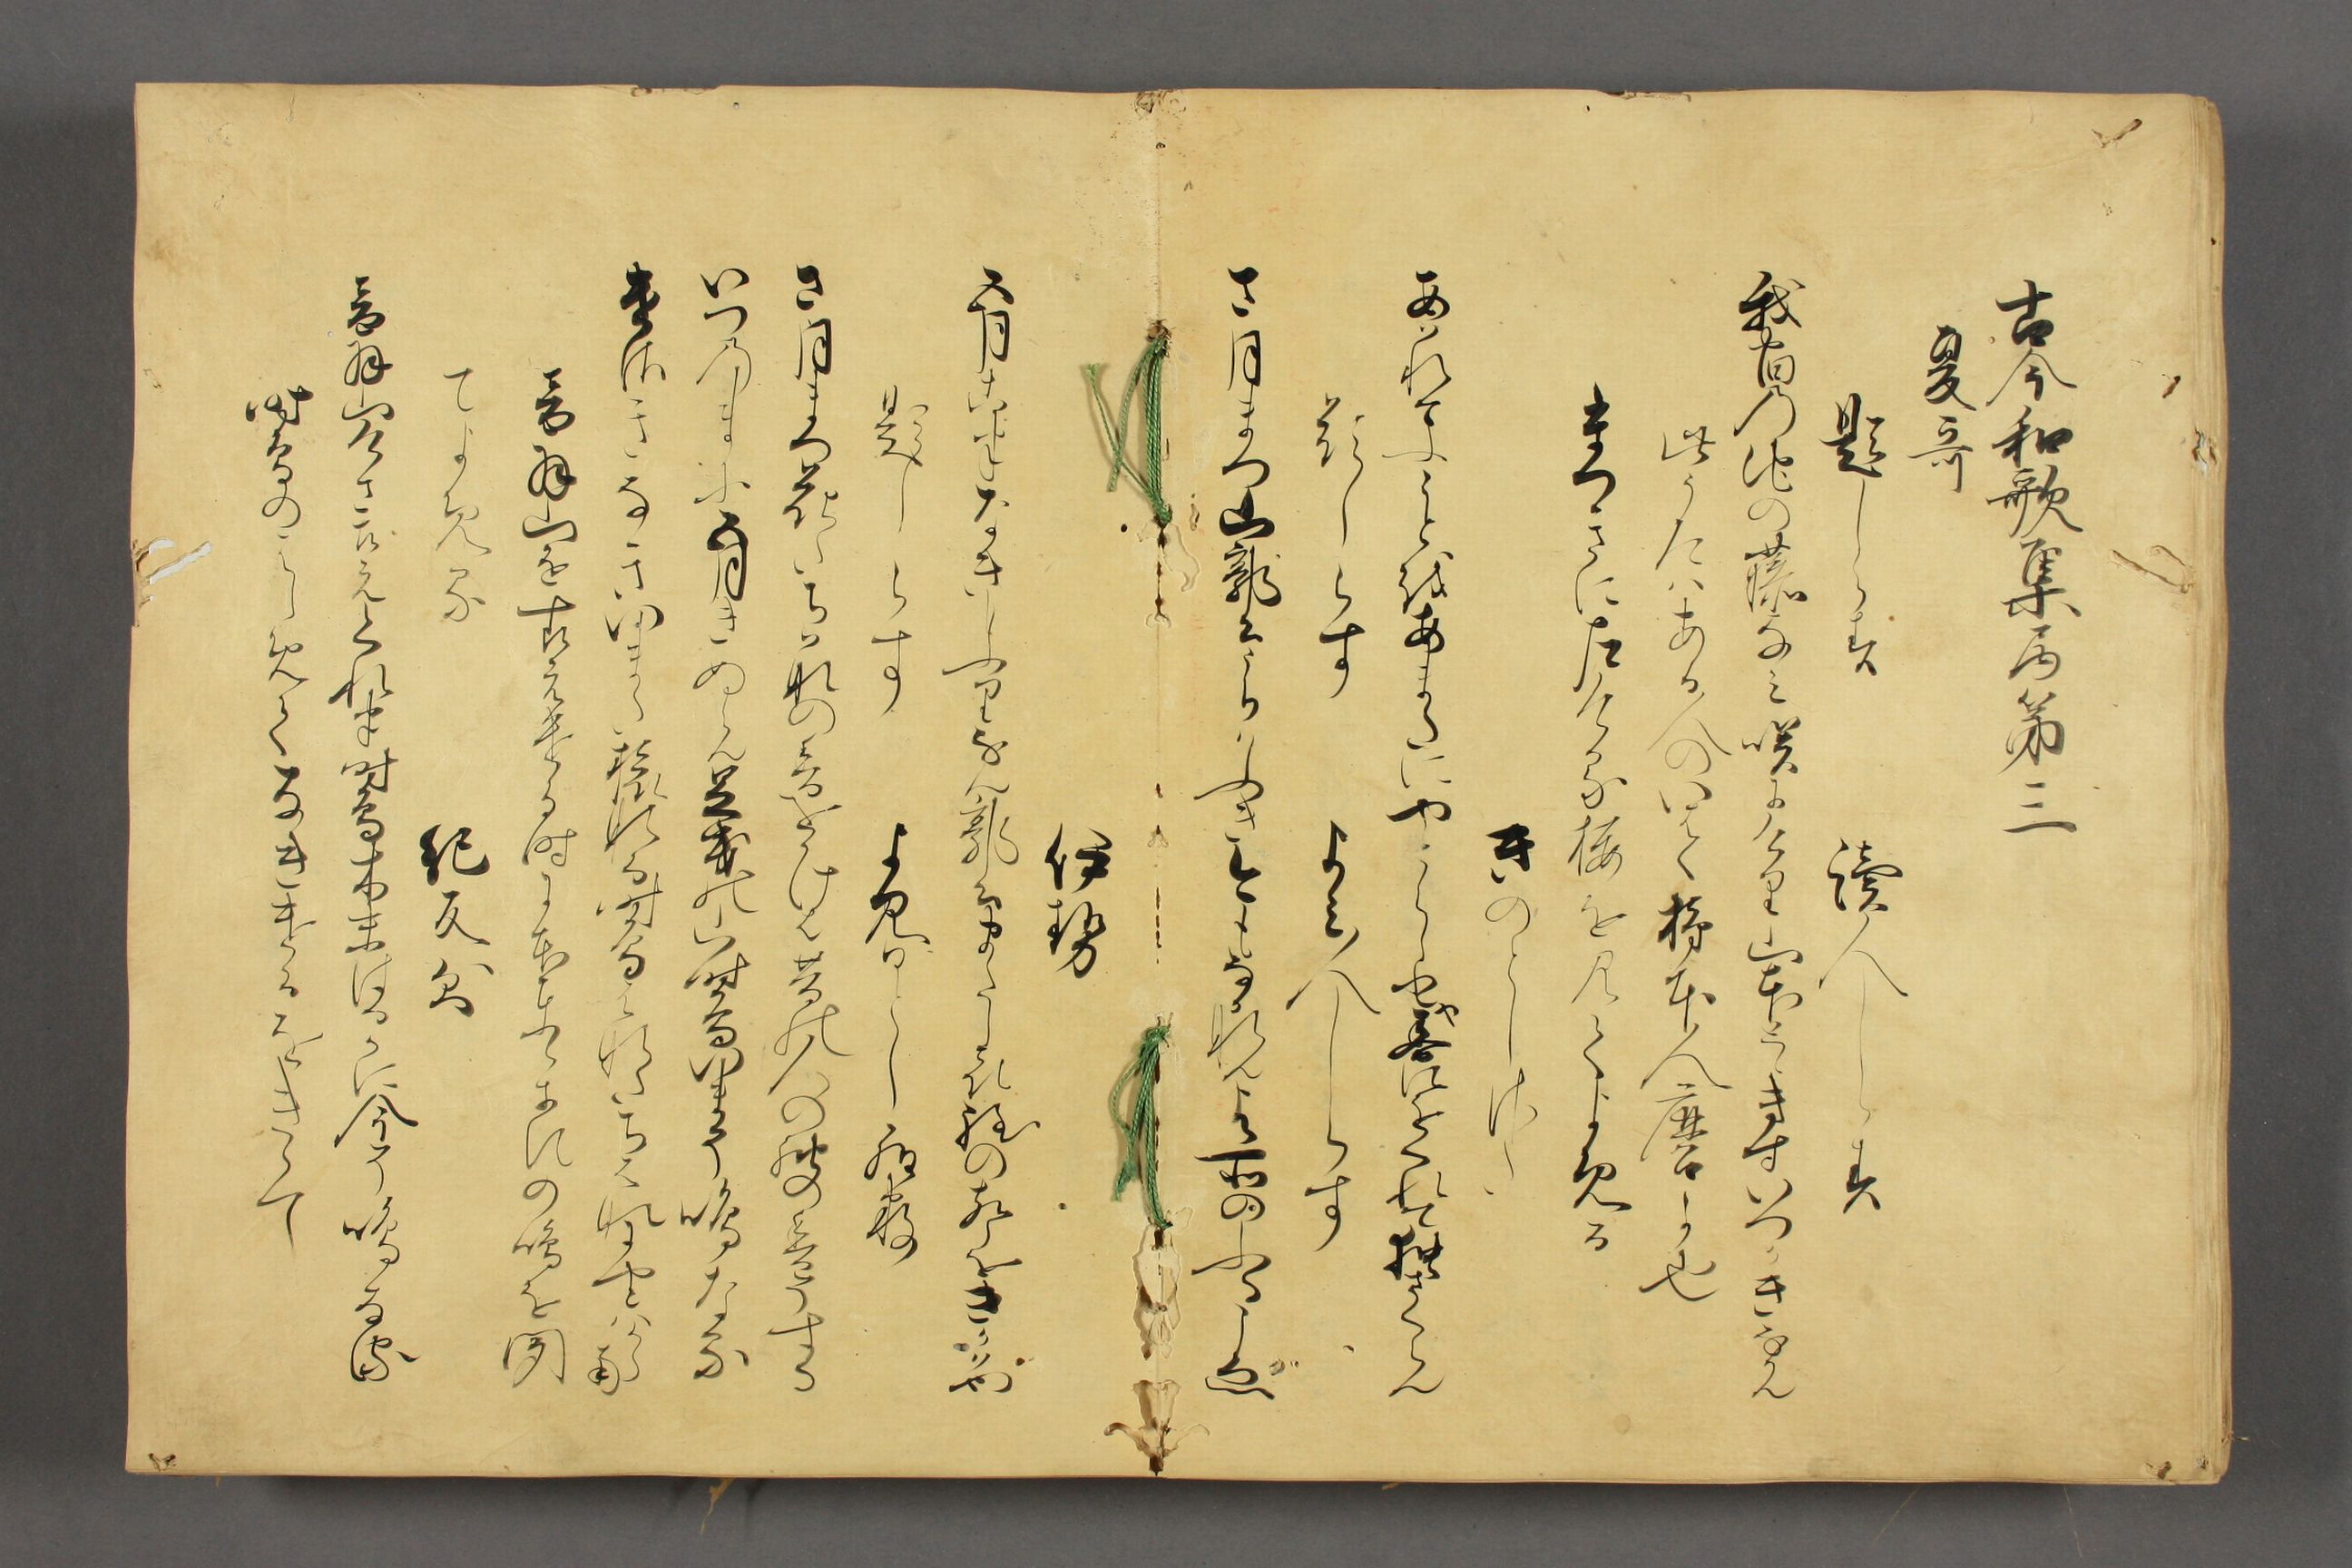 古今和歌集巻第三
夏哥
題しらす　讀人しらす
我宿乃池の藤なみ咲にけり山郭公いつかきなかん
此うたはある人のいはく柿本人麿か也
う月にさける桜を見てよめる
きのとしさた
あはれてふことをあまたにややらしとや春にをくれて独さくらん
題しらす　よみ人しらす
さ月まつ山郭公うちはふき今もなかなんこそのふるこゑ
伊勢
五月こはなきもふりなん郭公またしき程のこゑをきかはや
題しらす　よみ人しらす
さ月まつ花たち花の香をかけは昔の人の袖の香そする
いつのまに五月きぬらん足引の山時鳥今そ鳴なる
けさきなきいまた旅なる時鳥花たち花に宿はからなん
音羽山をこえける時に郭公の鳴を聞
てよめる
紀友則
音羽山けさこえくれは時鳥梢はるかに今そ鳴なる
時鳥のはしめてなきけるをきゝて